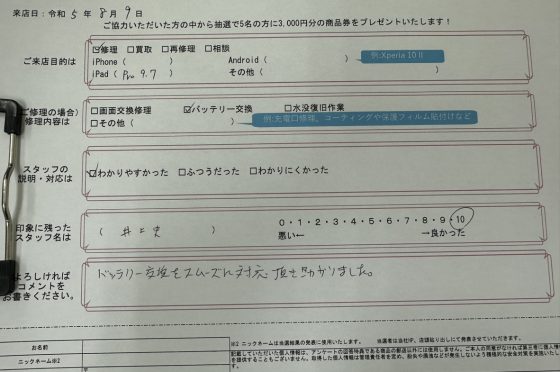 来店日：令和 5 年 8 月 9 日
ご協力いただいた方の中から抽選で5名の方に3,000円分の商品券をプレゼントいたします！
ご来店目的は
☑修理 □買取 □再修理 □相談
iPhone（ ） Android（ ） 例:Xperia 10Ⅱ
iPad（ Pro 9.7 ） その他（
ご修理の場合)
修理内容は
□画面交換修理 ☑バッテリー交換 □水没復旧作業
□その他（ ） 例:充電口修理、コーティングや保護フィルム貼付けなど
スタッフの
説明・対応は
☑わかりやすかった □ふつうだった □わかりにくかった
印象に残った
スタッフ名は
0・1・2・3・4・5・6・7・8・9・10
悪い← →良かった
よろしければ
コメントを
お書きください。
バッテリー交換をスムーズに対応頂き助かりました。
お名前
ニックネーム※2
※2 ニックネームは当選結果の発表に使用いたします。 当選者は当社HP、店頭貼り出しにて発表させていただきます。